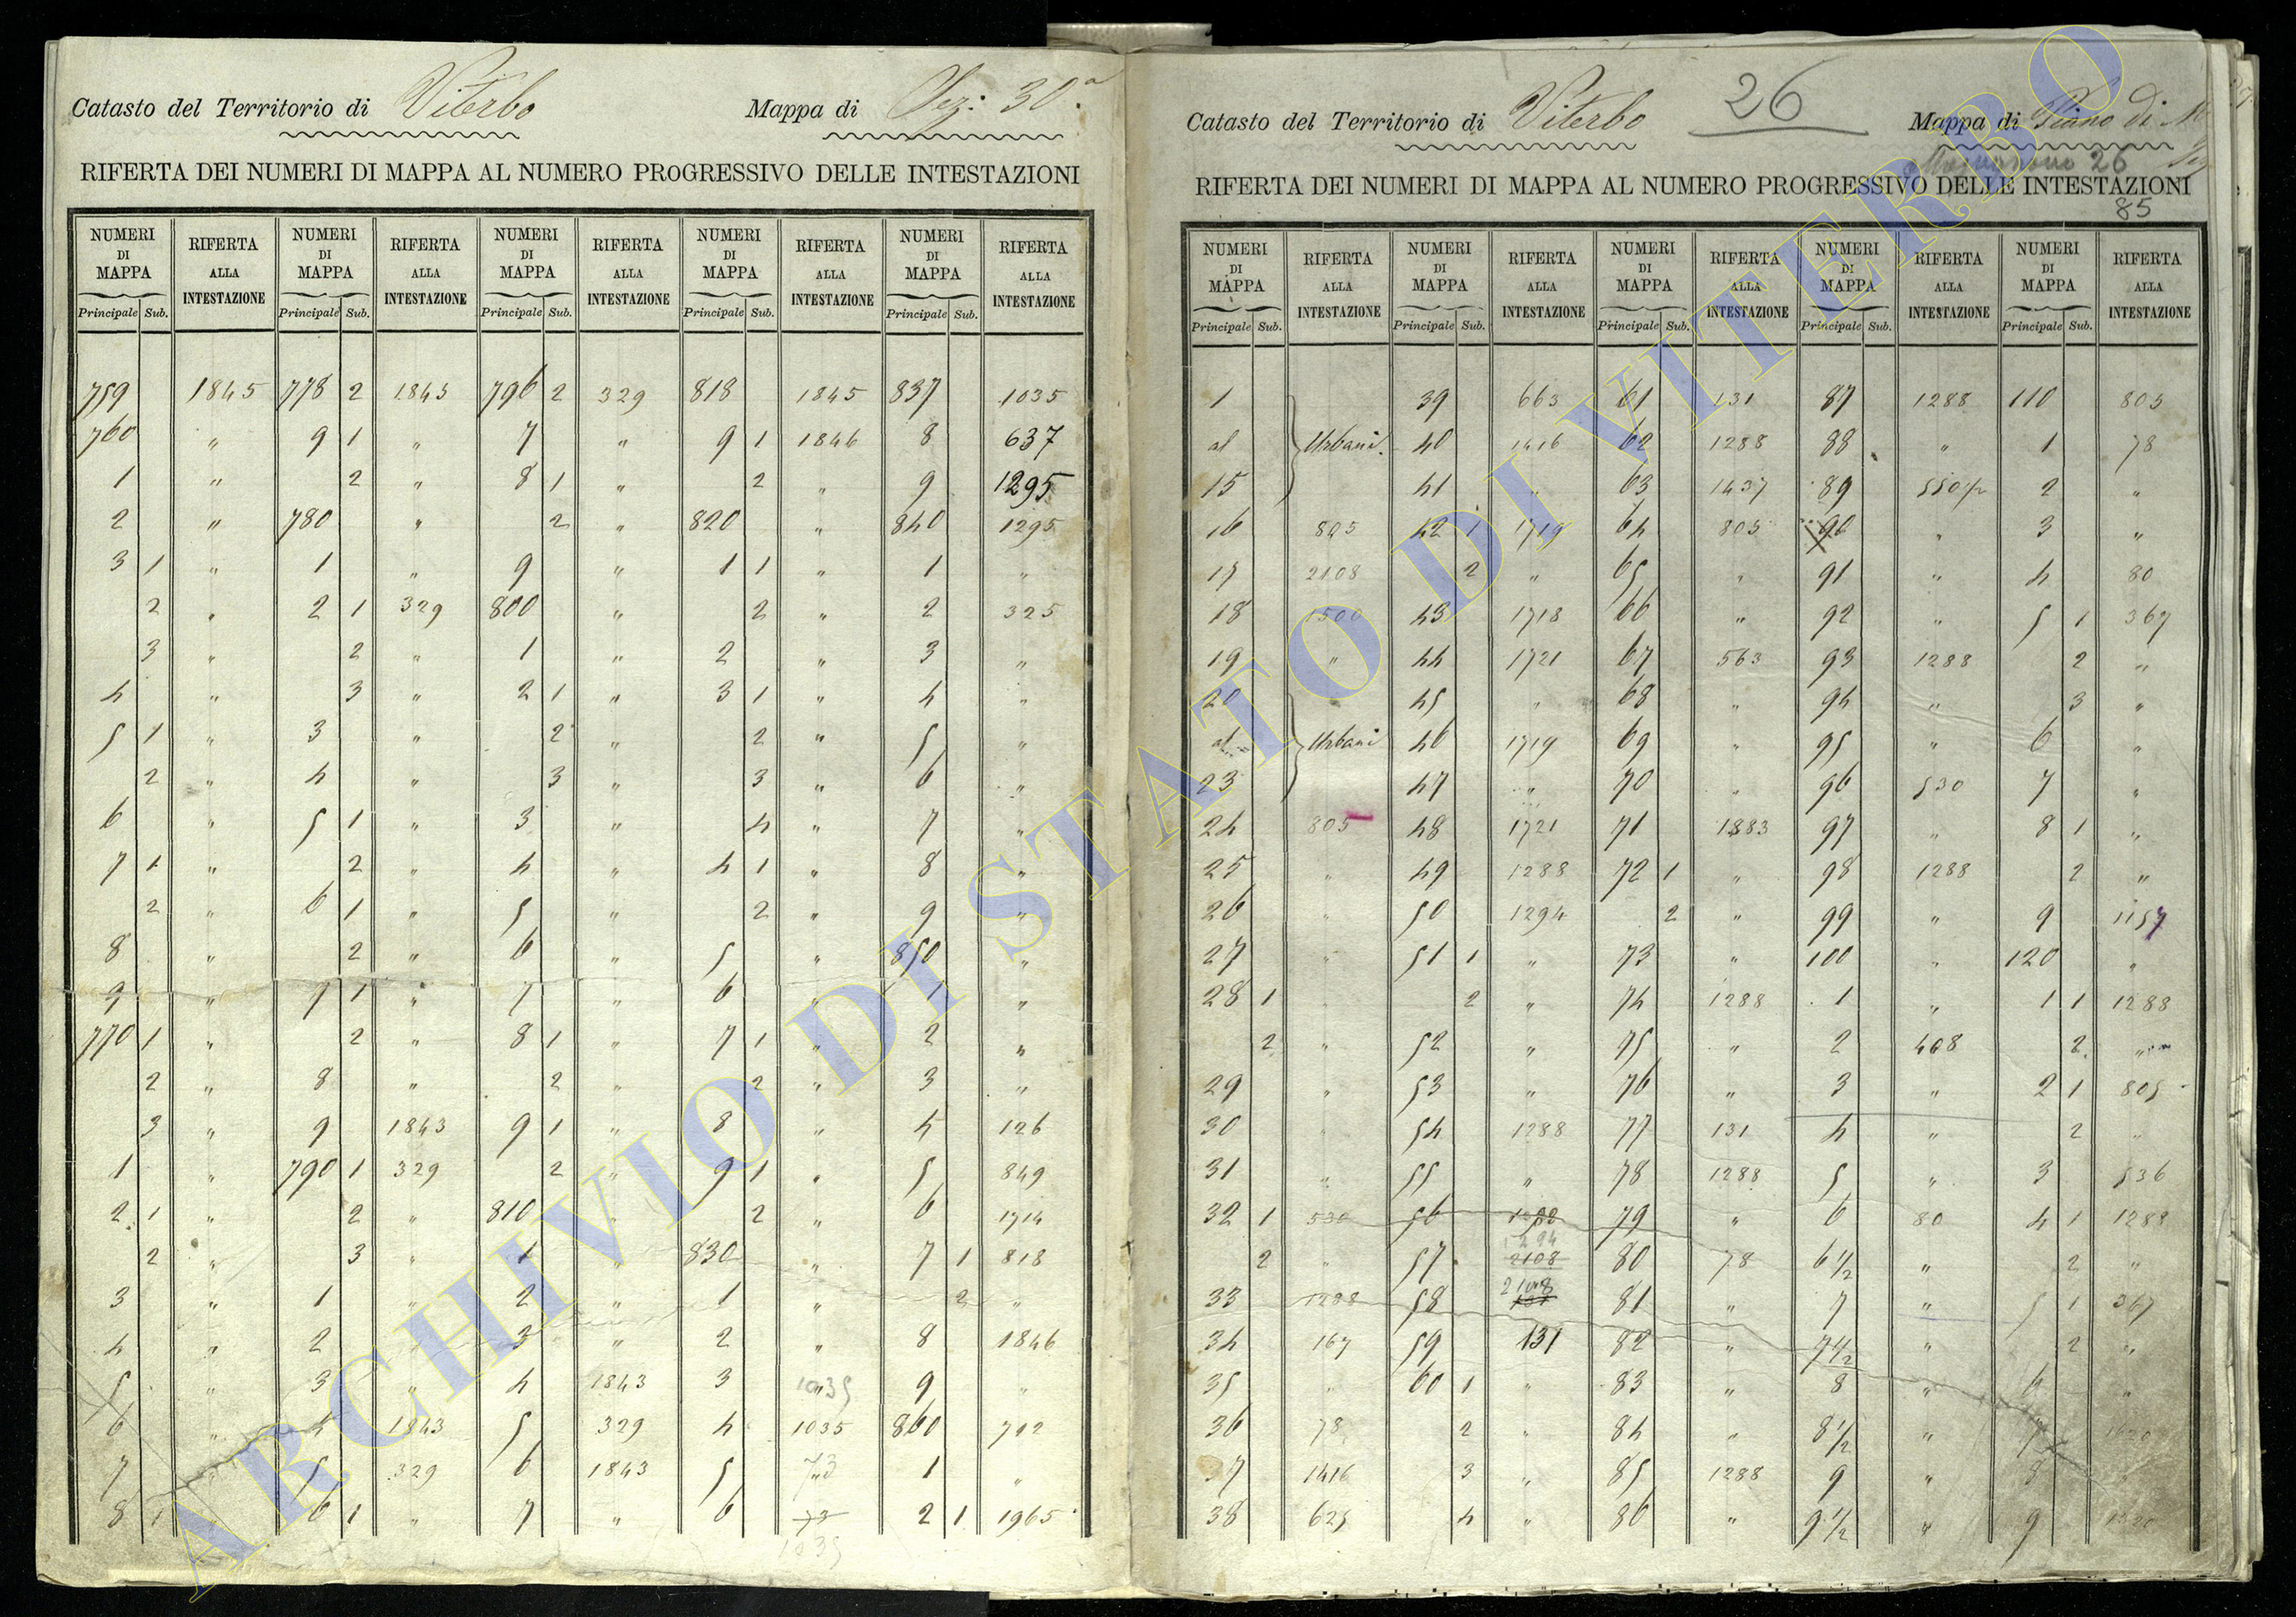 Catasto del Territorio di Viterbo Mappa di Sez: 30.a
RIFERTA DEI NUMERI DI MAPPA AL NUMERO PROGRESSIVO DELLE INTESTAZIONI
NUMERI DI MAPPA RIFERTA ALLA INTESTAZIONE NUMERI DI MAPPA RIFERTA ALLA INTESTAZIONE NUMERI DI MAPPA RIFERTA ALLA INTESTAZIONE NUMERI DI MAPPA RIFERTA ALLA INTESTAZIONE NUMERI DI MAPPA RIFERTA ALLA INTESTAZIONE
Principale Sub. Principale Sub. Principale Sub. Principale Sub. Principale Sub.
759 1845 778 2 1843 796 2 329 818 1845 837 1035
760 " 9 1 " 7 " 9 1 1846 8 637
1 " 2 " 8 1 " 2 " 9 1295
2 " 780 " 2 " 820 " 840 1295
3 1 " 1 " 9 " 1 1 " 1 "
2 " 2 1 329 800 " 2 " 2 325
3 " 2 " 1 " 2 " 3 "
4 " 3 " 2 1 " 3 1 " 4 "
5 1 " 3 " 2 " 2 " 5 "
2 " 4 " 3 " 3 " 6 "
6 " 5 1 " 3 " 4 " 7 "
7 1 " 2 " 4 " 4 1 " 8 "
2 " 6 1 " 5 " 2 " 9 "
8 " 2 " 6 " 5 " 850 "
9 " 7 1 " 7 " 6 " 1 "
770 1 " 2 " 8 1 " 7 1 " 2 "
2 " 8 " 2 " 2 " 3 "
3 " 9 1843 9 1 " 8 " 4 126
1 " 790 1 329 2 " 9 1 " 5 849
2 1 " 2 " 810 " 2 " 6 1714
2 " 3 " 1 " 830 " 7 1 818
3 " 1 " 2 " 1 " 2 "
4 " 2 " 3 " 2 " 8 1846
5 " 3 " 4 1843 3 1035 9 "
6 " 4 1843 5 329 4 1035 860 792
7 " 5 329 6 1843 5 73 1 "
8 1 6 1 " 7 " 6 73 2 1 1965
1035
Catasto del Territorio di Viterbo 26 Mappa di Piano di
26
RIFERTA DEI NUMERI DI MAPPA AL NUMERO PROGRESSIVO DELLE INTESTAZIONI
85
NUMERI DI MAPPA RIFERTA ALLA INTESTAZIONE NUMERI DI MAPPA RIFERTA ALLA INTESTAZIONE NUMERI DI MAPPA RIFERTA ALLA INTESTAZIONE NUMERI DI MAPPA RIFERTA ALLA INTESTAZIONE NUMERI DI MAPPA RIFERTA ALLA INTESTAZIONE
Principale Sub. Principale Sub. Principale Sub. Principale Sub. Principale Sub.
1 39 663 61 131 87 1288 110 805
al Urbani. 40 1416 62 1288 88 " 1 78
15 41 " 63 1437 89 2 "
16 805 42 1 1719 64 805 90 " 3 "
17 2108 2 " 65 " 91 " 4 80
18 1500 43 1718 66 " 92 " 5 1 367
19 " 44 1721 67 563 93 1288 2 "
20 45 " 68 " 94 " 3 "
al Urbani 46 1719 69 " 95 " 6 "
23 47 " 70 " 96 530 7 "
24 805 48 1721 71 1883 97 " 8 1 "
25 " 49 1288 72 1 " 98 1288 2 "
26 " 50 1294 2 " 99 " 9 1157
27 " 51 1 " 73 " 100 " 120 "
28 1 " 2 " 74 1288 1 " 1 1 1288
2 " 52 " 75 " 2 408 2 "
29 " 53 " 76 " 3 " 2 1 805
30 " 54 1288 77 131 4 " 2 "
31 " 55 " 78 1288 5 " 3 536
32 1 530 56 79 " 6 80 4 1 1288
1294
2 " 57 2108 80 78 6 1/2 " 2 "
2108
33 1288 58 131 81 " 7 " 5 1 367
34 167 59 131 82 " 7 1/2 " 2 "
35 " 60 1 " 83 " 8 " 6 "
36 78 2 " 84 " 8 1/2 " 7
37 1416 3 " 85 1288 9 " 8
38 625 4 " 86 " 9 1/2 " 9
ARCHIVIO DI STATO DI VITERBO